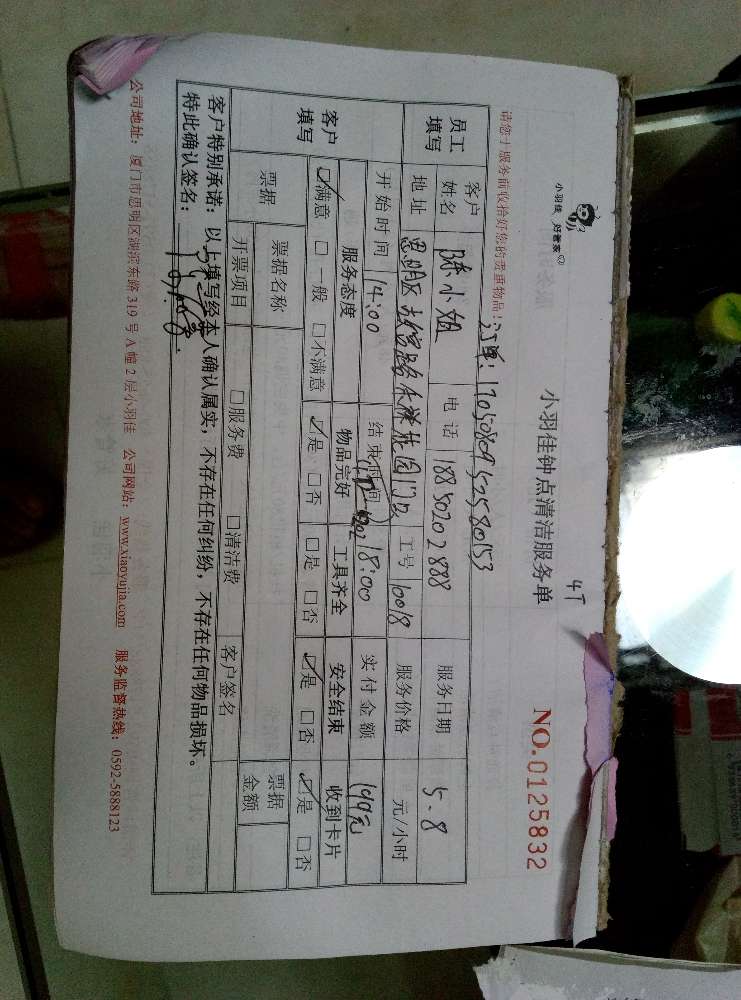 小羽佳 好管家
小羽佳钟点清洁服务单
4T
NO.0125832
请您于服务前收拾好您的贵重物品！
订单：
员工填写 客户姓名 陈小姐 电话 18850202888 服务日期 5.8
地址 思明区 工号 10018 服务价格 元/小时
开始时间 14:00 结束时间 18:00 实付金额 199元
客户填写 服务态度 物品完好 工具齐全 安全结束 收到卡片
☑满意 □一般 □不满意 ☑是 □否 □是 □否 ☑是 □否 ☑是 □否
票据 票据名称 票据金额
开票项目 □服务费 □清洁费 客户签名
客户特别承诺：以上填写经本人确认属实，不存在任何纠纷，不存在任何物品损坏。
特此确认签名：
公司地址：厦门市思明区湖滨东路 319 号 A 幢 2 层小羽佳 公司网站：www.xiaoyujia.com 服务监督热线：0592-5888123